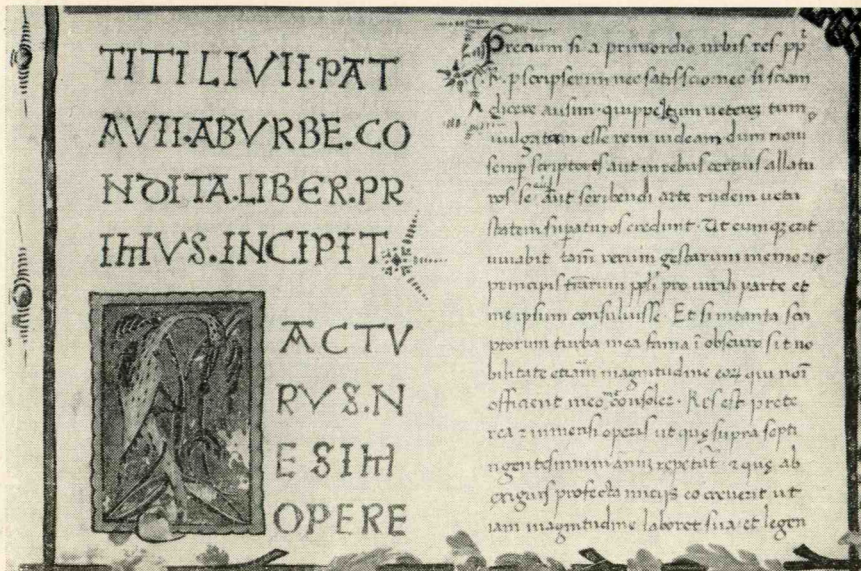 TITI LIVII.PAT
AVII.AB VRBE.CO
NDITA.LIBER.PR
IMVS.INCIPIT
FACTV
RVS.N
E SIM
OPERE
Precium si a primordio urbis res pp̃
R. pscripserim nec satis scio: nec si sciam
dicere ausim. quippe tum ueterem tum
uulgatam esse rem uideam dum noui
semp scriptores aut in rebus certius allatu
ros se aliquid aut scribendi arte rudem uetu
statem supaturos credunt. Ut cumqꝫ erit
iuuabit tam̃ rerum gestarum memorie
principis terrarum ppli pro uirili parte et
me ipsum consuluisse. Et si in tanta scri
ptorum turba mea fama ĩ obscuro sit no
bilitate etiam magnitudine eorꝫ qui noĩ
officient meo me consoler. Res est prete
rea ⁊ immensi operis ut quę supra septi
ngentesimum annũ repetat̃ ⁊ quę ab
exiguis profecta initiis eo creuerit ut
iam magnitudine laboret sua. et legen